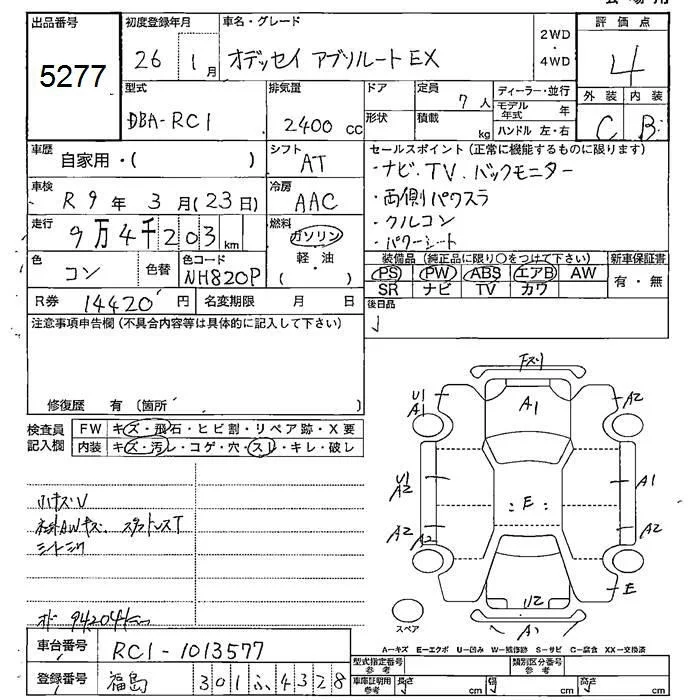 出品番号 初度登録年月 車名・グレード 評価点
5277 26 1月 オデッセイ アブソルート EX 2WD・4WD 4
型式 排気量 ドア 定員 ディーラー・並行 外装 内装
DBA-RC1 2400 cc 形状 7人 積載 kg モデル年式 年 ハンドル 左・右 C B
車歴 自家用・( ) シフト AT セールスポイント(正常に機能するものに限ります)
・ナビ.TV.バックモニター
車検 R9年3月(23日) 冷房 AAC ・両側パワスラ
走行 9万4千203km 燃料 ガソリン ・クルコン
軽油 ・パワーシート
( )
色 コン 色替 色コード NH820P 装備品(純正品に限り○をつけて下さい) 新車保証書
PS PW ABS エアB AW 有・無
SR ナビ TV カワ
R券 14420円 名変期限 月 日 後日品
注意事項申告欄(不具合内容等は具体的に記入して下さい)
修復歴 有(箇所
検査員記入欄 FW キズ・飛石・ヒビ割・リペア跡・X要
内装 キズ・汚レ・コゲ・穴・スレ・キレ・破レ
小キズU
社外AWキズ.スタットレスT
シートシワ
オドー94204キロ
車台番号 RC1-1013577
登録番号 福島 301ふ4328
Fスリ
U1 A1 A1 A2
U1 A2 E A1
A2 A2 A2
U2 E
A1
スペア
A-キズ E-エクボ U-凹み W-補修跡 S-サビ C-腐食 XX-交換済
型式指定番号 参考 類別区分番号 参考
車庫証明用 参考 長さ 幅 高さ